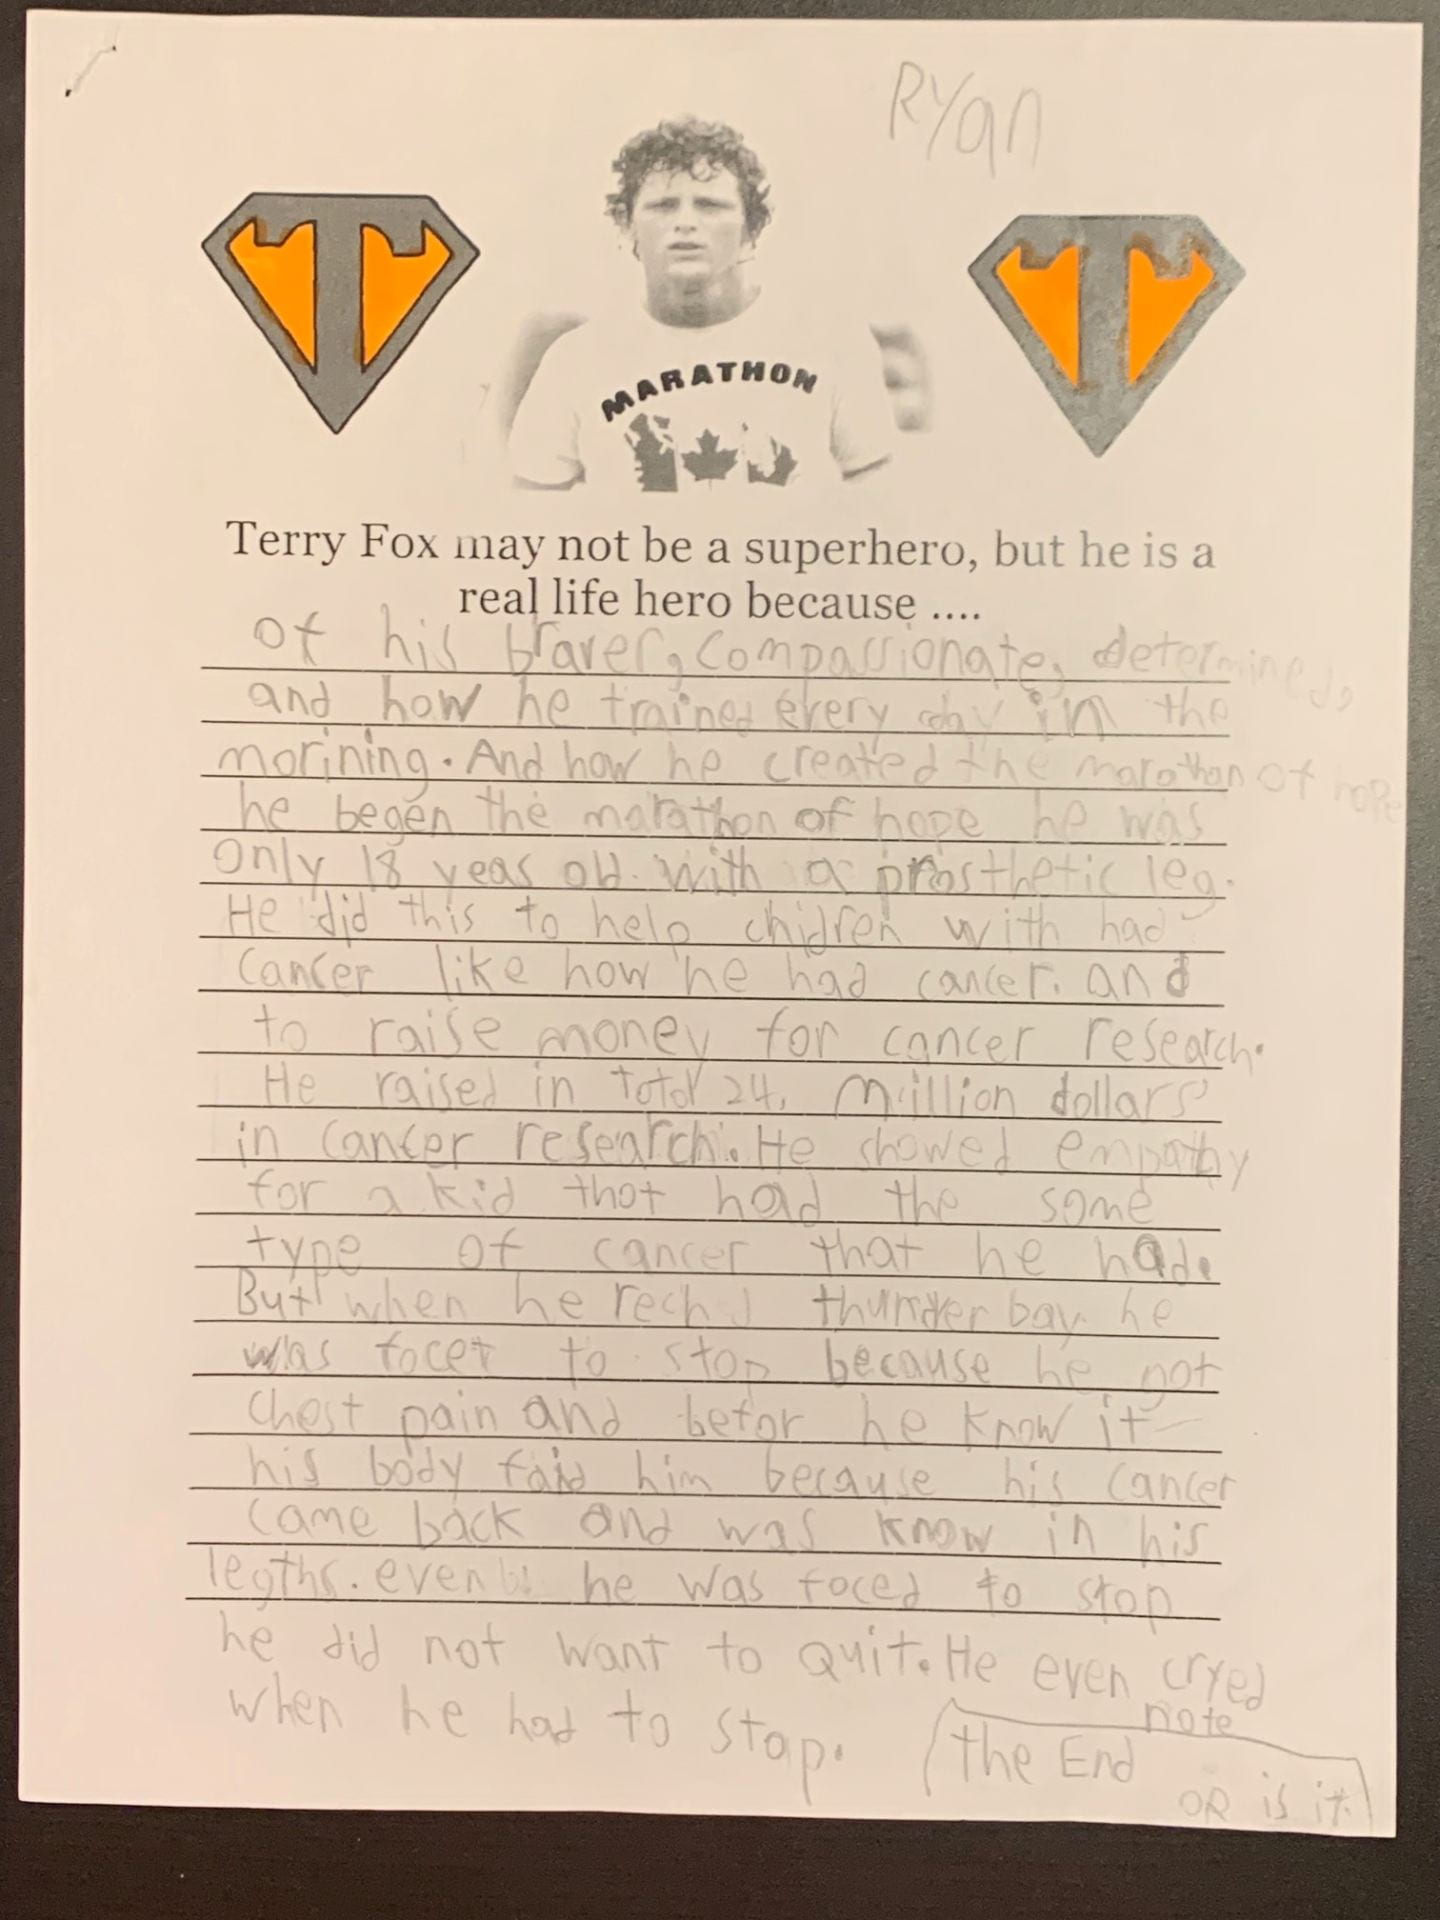 Ryan
MARATHON
Terry Fox may not be a superhero, but he is a
real life hero because ....
of his braver, compassionate, determined,
and how he trained every day in the
morining. And how he created the marathan of hope
he begen the marathon of hope he was
only 18 yeas old. with a prosthetic leg.
He did this to help chidren with had
cancer like how he had cancer. and
to raise money for cancer research.
He raised in total 24, million dollars
in cancer research. He showed empathy
for a kid that had the same
type of cancer that he had.
But when he rechd thunder bay. he
was focet to stop because he got
chest pain and befor he know it
his body faid him because his cancer
came back and was know in his
legths. even he was foced to stop
he did not want to quit. He even cryed
when he had to stop.
note
the End
OR is it.